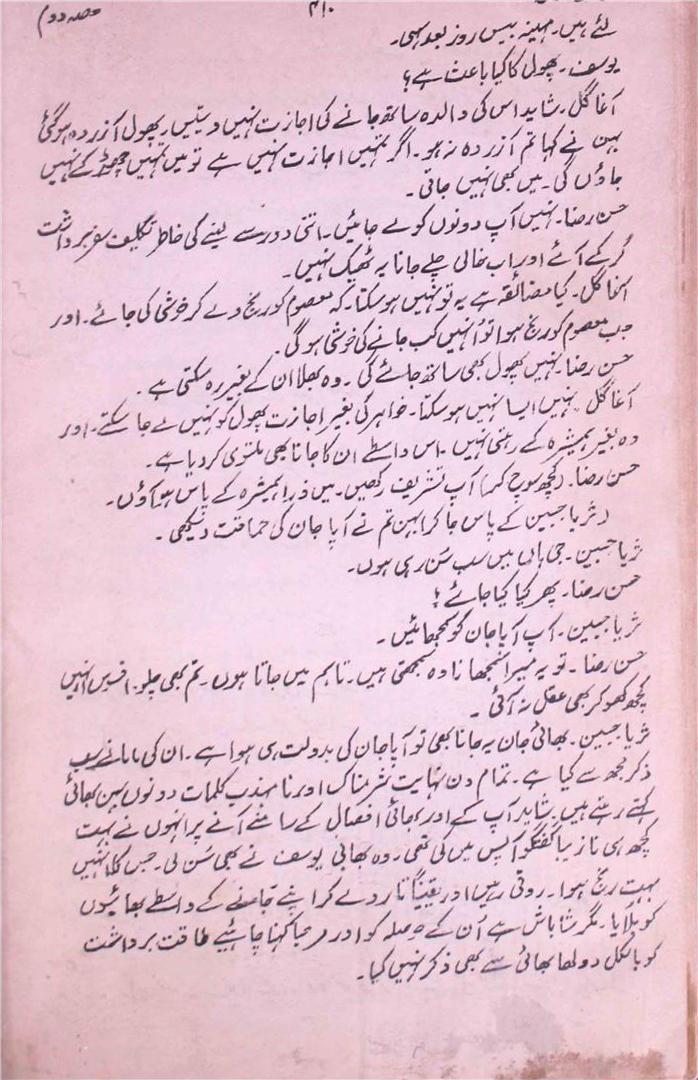 حصہ دوم
۴۱۰
لئے ہیں۔ مہینہ بیس روز بعد سہی۔
یوسف۔ پھول کا کیا باعث ہے؟
آغا گل۔ شاید اس کی والدہ ساتھ جانے کی اجازت نہیں دیتیں۔ پھول آزردہ ہوگئی
بہن نے کہا تم آزردہ نہ ہو۔ اگر تمہیں اجازت نہیں ہے تو میں تمہیں چھوڑ کے نہیں
جاؤں گی۔ میں بھی نہیں جاتی۔
حسن رضا۔ نہیں آپ دونوں کو لے جائیں۔ اتنی دور سے لینے کی خاطر تکلیف سفر برداشت
کرکے آئے اور اب خالی چلے جانا یہ ٹھیک نہیں۔
آغا گل۔ کیا مضائقہ ہے یہ تو نہیں ہوسکتا۔ کہ معصوم کو رنج دے کر خوشی کی جائے۔ اور
جب معصوم کو رنج ہوا تو اُنہیں کب جانے کی خوشی ہوگی۔
حسن رضا۔ نہیں پھول بھی ساتھ جائے گی۔ وہ بھلا ان کے بغیر رہ سکتی ہے۔
آغا گل۔ نہیں ایسا نہیں ہوسکتا۔ خواہر کی بغیر اجازت پھول کو نہیں لے جا سکتے۔ اور
وہ بغیر ہمشیرہ کے رہتی نہیں۔ اس واسطے ان کا جانا بھی ملتوی کر دیا ہے۔
حسن رضا۔ (کچھ سوچ کر) آپ تشریف رکھیں۔ میں ذرا ہمشیرہ کے پاس ہو آؤں۔
(ثریا جبین کے پاس جاکر) بہن تم نے آپا جان کی حماقت دیکھی۔
ثریا جبین۔ جی ہاں میں سب سُن رہی ہوں۔
حسن رضا۔ پھر کیا کیا جائے؟
ثریا جبین۔ آپ آپا جان کو سمجھائیں۔
حسن رضا۔ توبہ میرا سمجھانا وہ سمجھتی ہیں۔ تاہم میں جاتا ہوں۔ تم بھی چلو۔ افسوس انہیں
کچھ کھو کر بھی عقل نہ آئی۔
ثریا جبین۔ بھائی جان یہ جانا بھی تو آپا جان کی بدولت ہی ہوا ہے۔ ان کی ماما نے سب
ذکر مجھ سے کیا ہے۔ تمام دن نہایت شرمناک اور نامہذب کلمات دونوں بہن بھائی
کہتے رہتے ہیں۔ شاید آپ کے اور بھائی افضال کے سامنے آنے پر انہوں نے بہت
کچھ ہی نازیبا گفتگو آپس میں کی تھی۔ وہ بھابی یوسف نے بھی سُن لی۔ جس کا انہیں
بہت رنج ہوا۔ روتی رہیں اور یقیناً تار دے کر اپنے جانے کے واسطے بھائیوں
کو بلایا۔ مگر شاباش ہے اُن کے حوصلہ کو اور مرحبا کہنا چاہئیے طاقت برداشت
کو بالکل دولھا بھائی سے بھی ذکر نہیں کیا۔